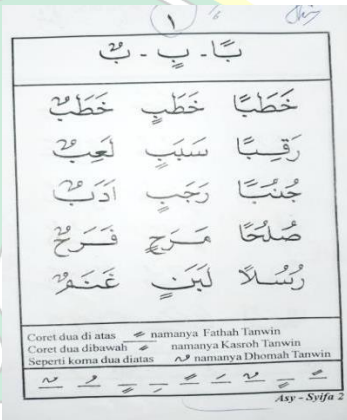 ١
بًا - بٍ - بٌ
خَطَبًا خَطَبٍ خَطَبٌ
رَقِبًا سَبَبٍ لَعِبٌ
جُنُبًا رَجَبٍ اَدَبٌ
صُلُحًا مَرَحٍ فَرَحٌ
رُسُلًا لَبَنٍ غَنَمٌ
Coret dua di atas ـً namanya Fathah Tanwin
Coret dua dibawah ـٍ namanya Kasroh Tanwin
Seperti koma dua diatas ـٌ namanya Dhomah Tanwin
Asy - Syifa 2